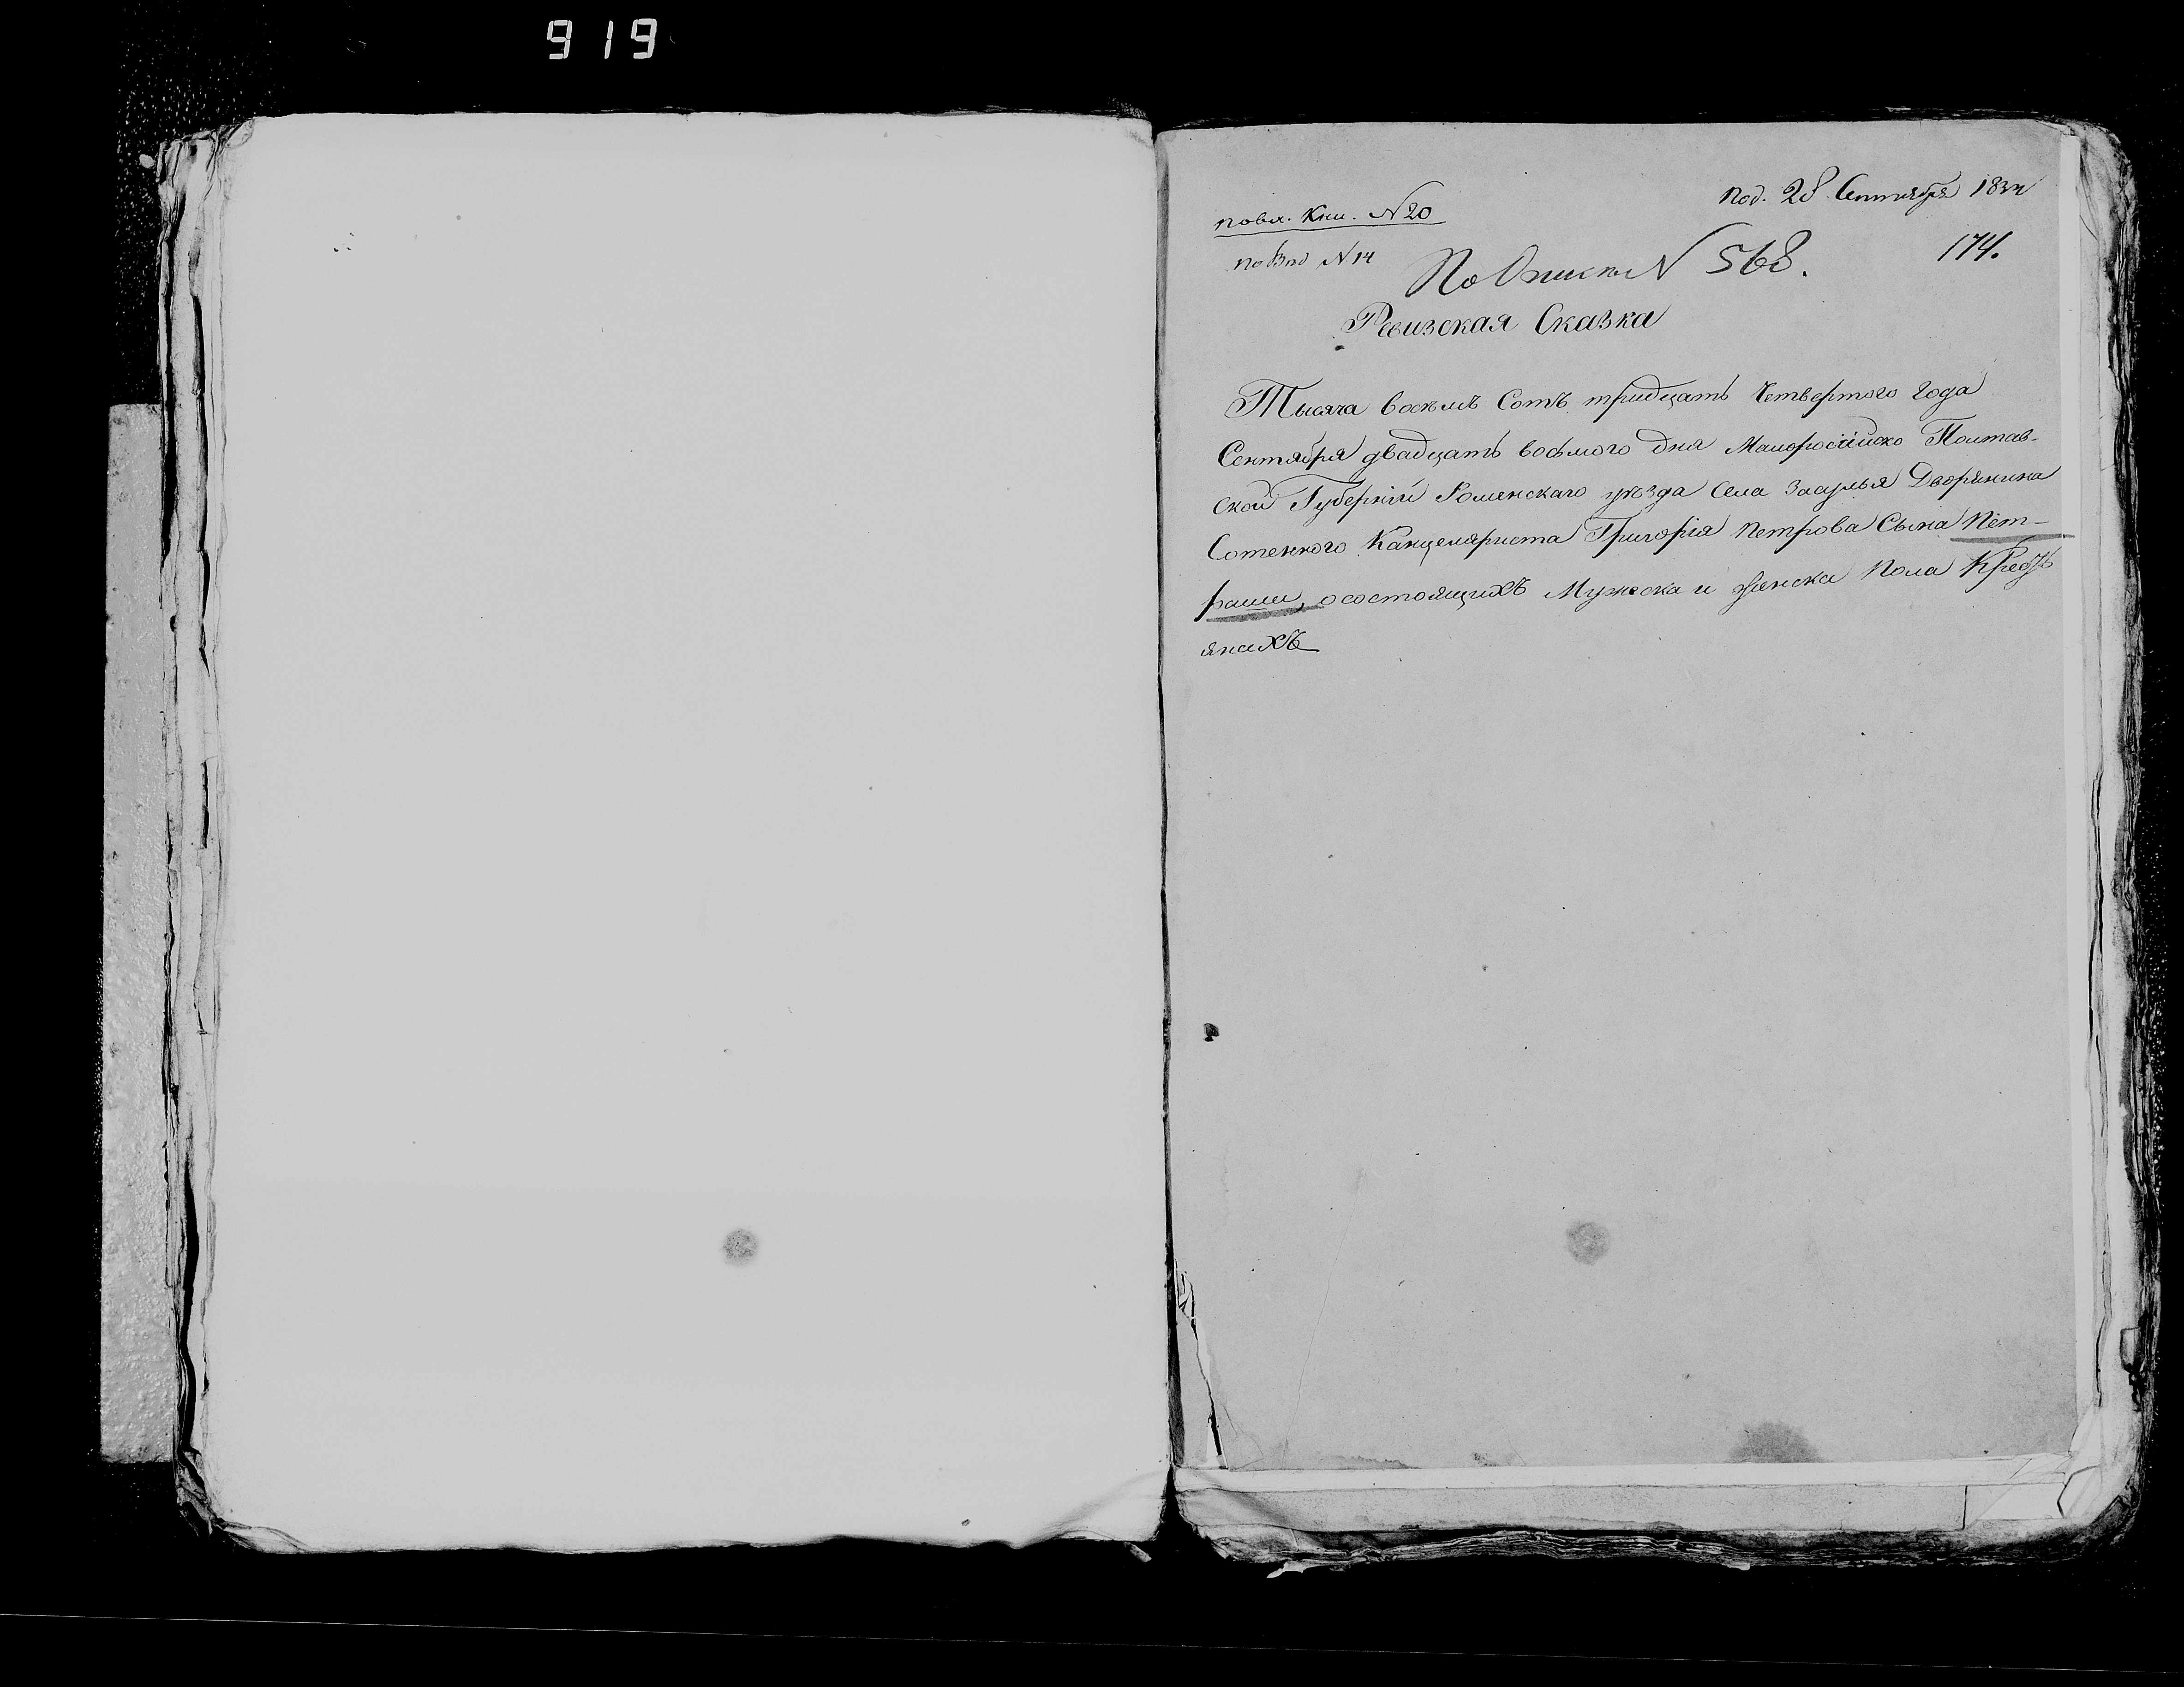 919
под. 28 Сентября 1834
повл. Кни. N 20
по Вид N 14
174.
По Описи N 568.
Ревизская Сказка
Тысяча восемъ Сотъ тридцать Четвертого года
Сентября двадцать восьмого дня Малоросийско Полтав-
ской Губернїи Роменскаго уѣзда Села Засулья Дворянина
Сотенного Канцеляриста Григорїя Петрова Сына Пет-
раши, осостоящихъ Мужеска и женска пола Кресть
янахъ